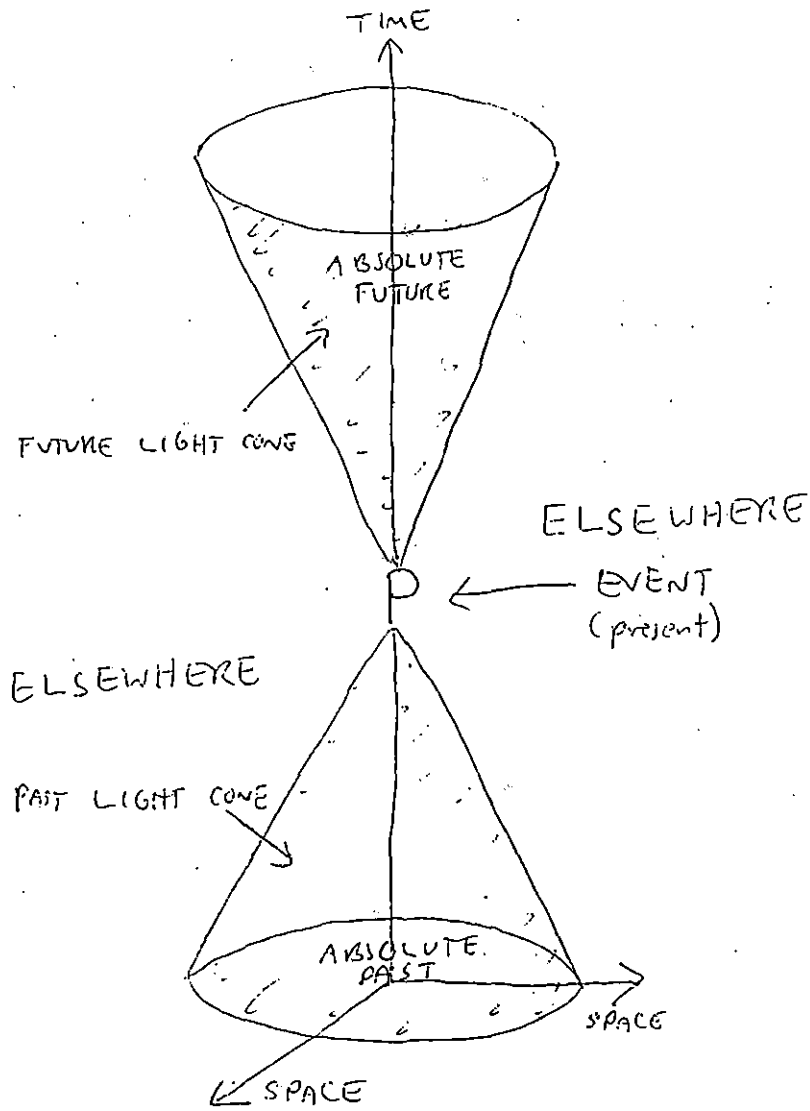 TIME
ABSOLUTE
FUTURE
FUTURE LIGHT CONE
ELSEWHERE
P
EVENT
(present)
ELSEWHERE
PAST LIGHT CONE
ABSOLUTE
PAST
SPACE
SPACE